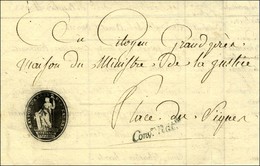 Au Citoyen Grandprés
maison du Ministre de la justice
Place des Piques
Conv. Nat.